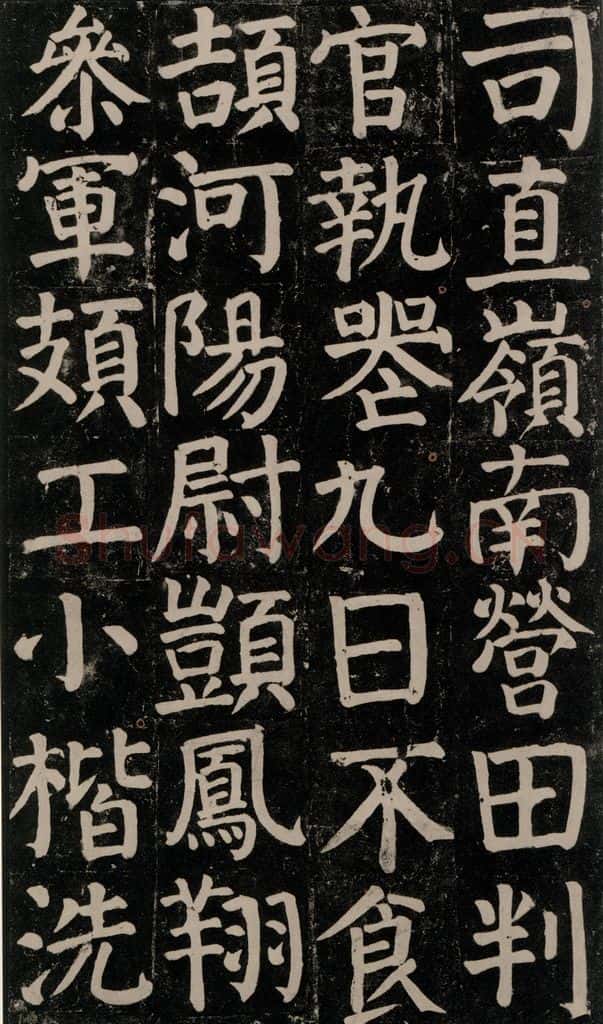 司直嶺南營田判
官執喪九日不食
頡河陽尉顗鳳翔
叅軍頍工小楷洗
Shufawang.CN